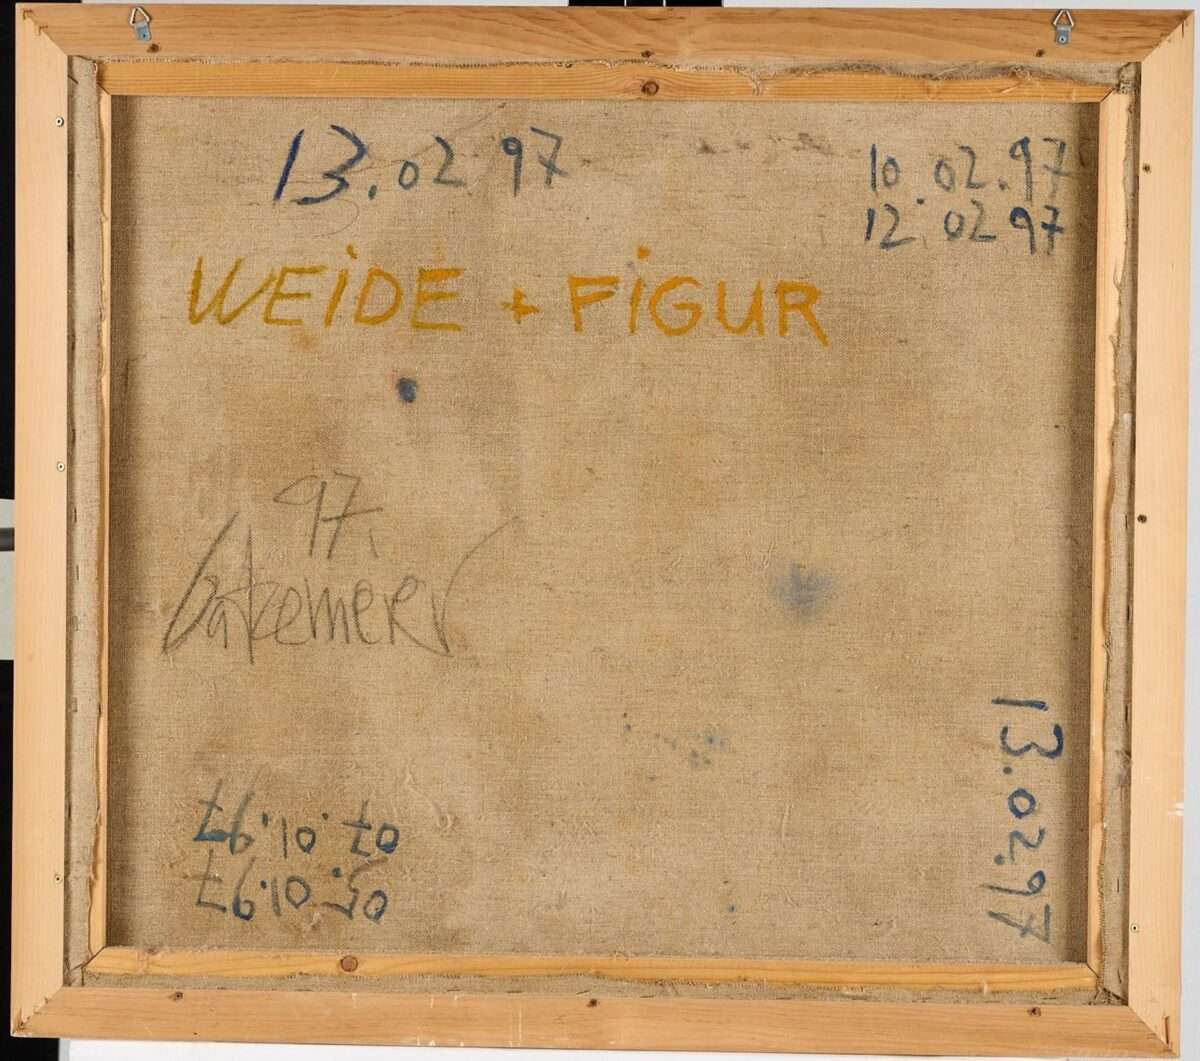 13.02 97
10.02.97
12.02 97
WEiDE + FiGUR
97.
13.02.97
05.01.97
07.01.97